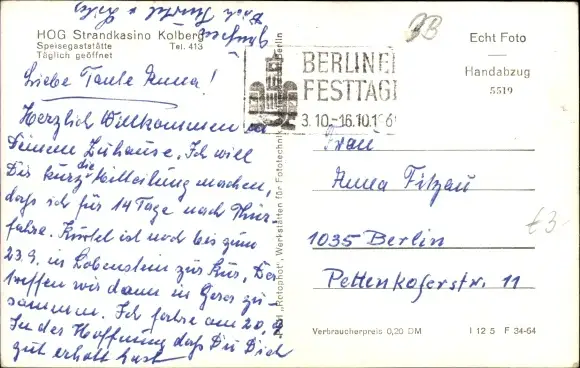 HOG Strandkasino Kolberg
Speisegaststätte Tel. 413
Täglich geöffnet
Liebe Tante Anna!
Herzlich Willkommen in
Deinem Zuhause. Ich will
Dir kurz die Mitteilung machen,
daß ich für 14 Tage nach Thür.
fahre. Kurtel ist noch bis zum
23.9. in Lobenstein zur Kur, Da
treffen wir dann in Gera zu-
sammen. Ich fahre am 20.9.
In der Hoffnung daß Du Dich
gut erholt hast
BERLINER
FESTTAGE
3.10.-16.10.196
33
Echt Foto
Handabzug
5519
Frau
Anna Fitzau
1035 Berlin
Pettenkoferstr. 11
£3-
Verbraucherpreis 0,20 DM I 12 5 F 34-64
"Rotophot", Werkstätten für Fototechnik
Berlin